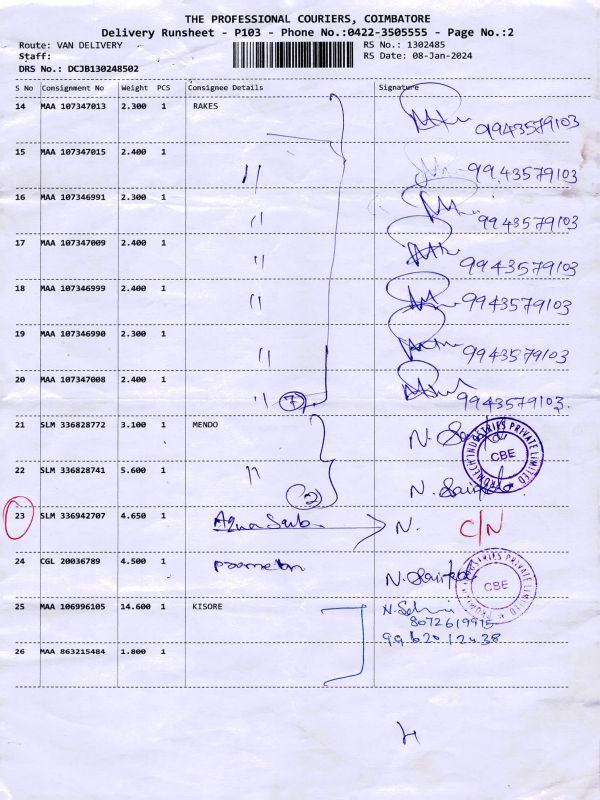 THE PROFESSIONAL COURIERS, COIMBATORE
Delivery Runsheet - P103 - Phone No.:0422-3505555 - Page No.:2
Route: VAN DELIVERY RS No.: 1302485
Staff: RS Date: 08-Jan-2024
DRS No.: DCJB130248502
S No Consignment No Weight PCS Consignee Details Signature
14 MAA 107347013 2.300 1 RAKES 9943579103
15 MAA 107347015 2.400 1 " 9943579103
16 MAA 107346991 2.300 1 " 9943579103
17 MAA 107347009 2.400 1 " 9943579103
18 MAA 107346999 2.400 1 " 9943579103
19 MAA 107346990 2.300 1 " 9943579103
20 MAA 107347008 2.400 1 " 7 9943579103
21 SLM 336828772 3.100 1 MENDO N.
INDUSTRIES PRIVATE LIMITED
CBE
22 SLM 336828741 5.600 1 " 2 N.
23 SLM 336942707 4.650 1 N. C/N
24 CGL 20036789 4.500 1 N.
INDUSTRIES PRIVATE LIMITED
CBE
25 MAA 106996105 14.600 1 KISORE N.
8072619975
9962012438
26 MAA 863215484 1.800 1